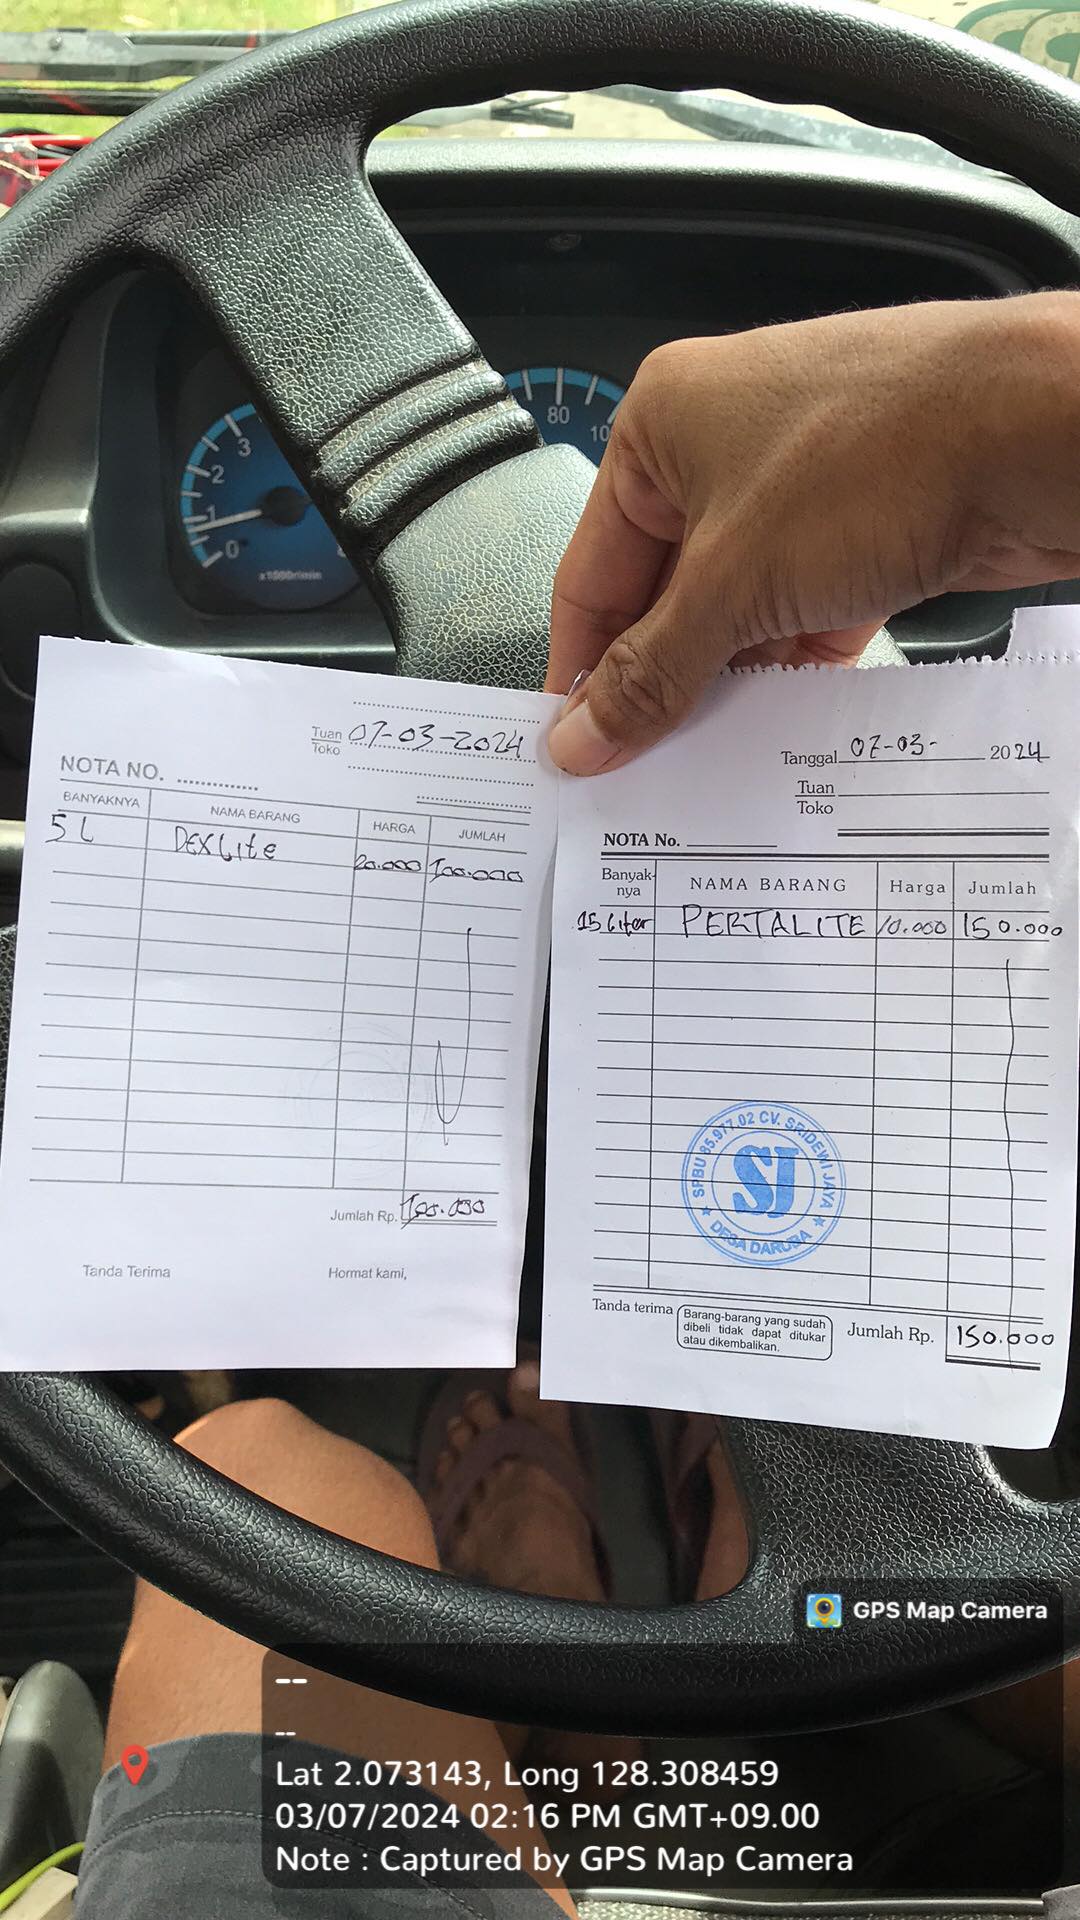 3
2
1
0
x1000r/min
80
10
Tuan
Toko
07-03-2024
NOTA NO.
BANYAKNYA NAMA BARANG HARGA JUMLAH
5 L DEXLite 20.000 100.000
Jumlah Rp. 100.000
Tanda Terima Hormat kami,
Tanggal 07-03- 2024
Tuan
Toko
NOTA No.
Banyak-
nya NAMA BARANG Harga Jumlah
15 Liter PERTALITE 10.000 150.000
SPBU 85.977.02 CV. SRIDEWI JAYA
SJ
★ DESA DARUBA ★
Tanda terima
Barang-barang yang sudah
dibeli tidak dapat ditukar
atau dikembalikan.
Jumlah Rp. 150.000
GPS Map Camera
--
--
Lat 2.073143, Long 128.308459
03/07/2024 02:16 PM GMT+09.00
Note : Captured by GPS Map Camera